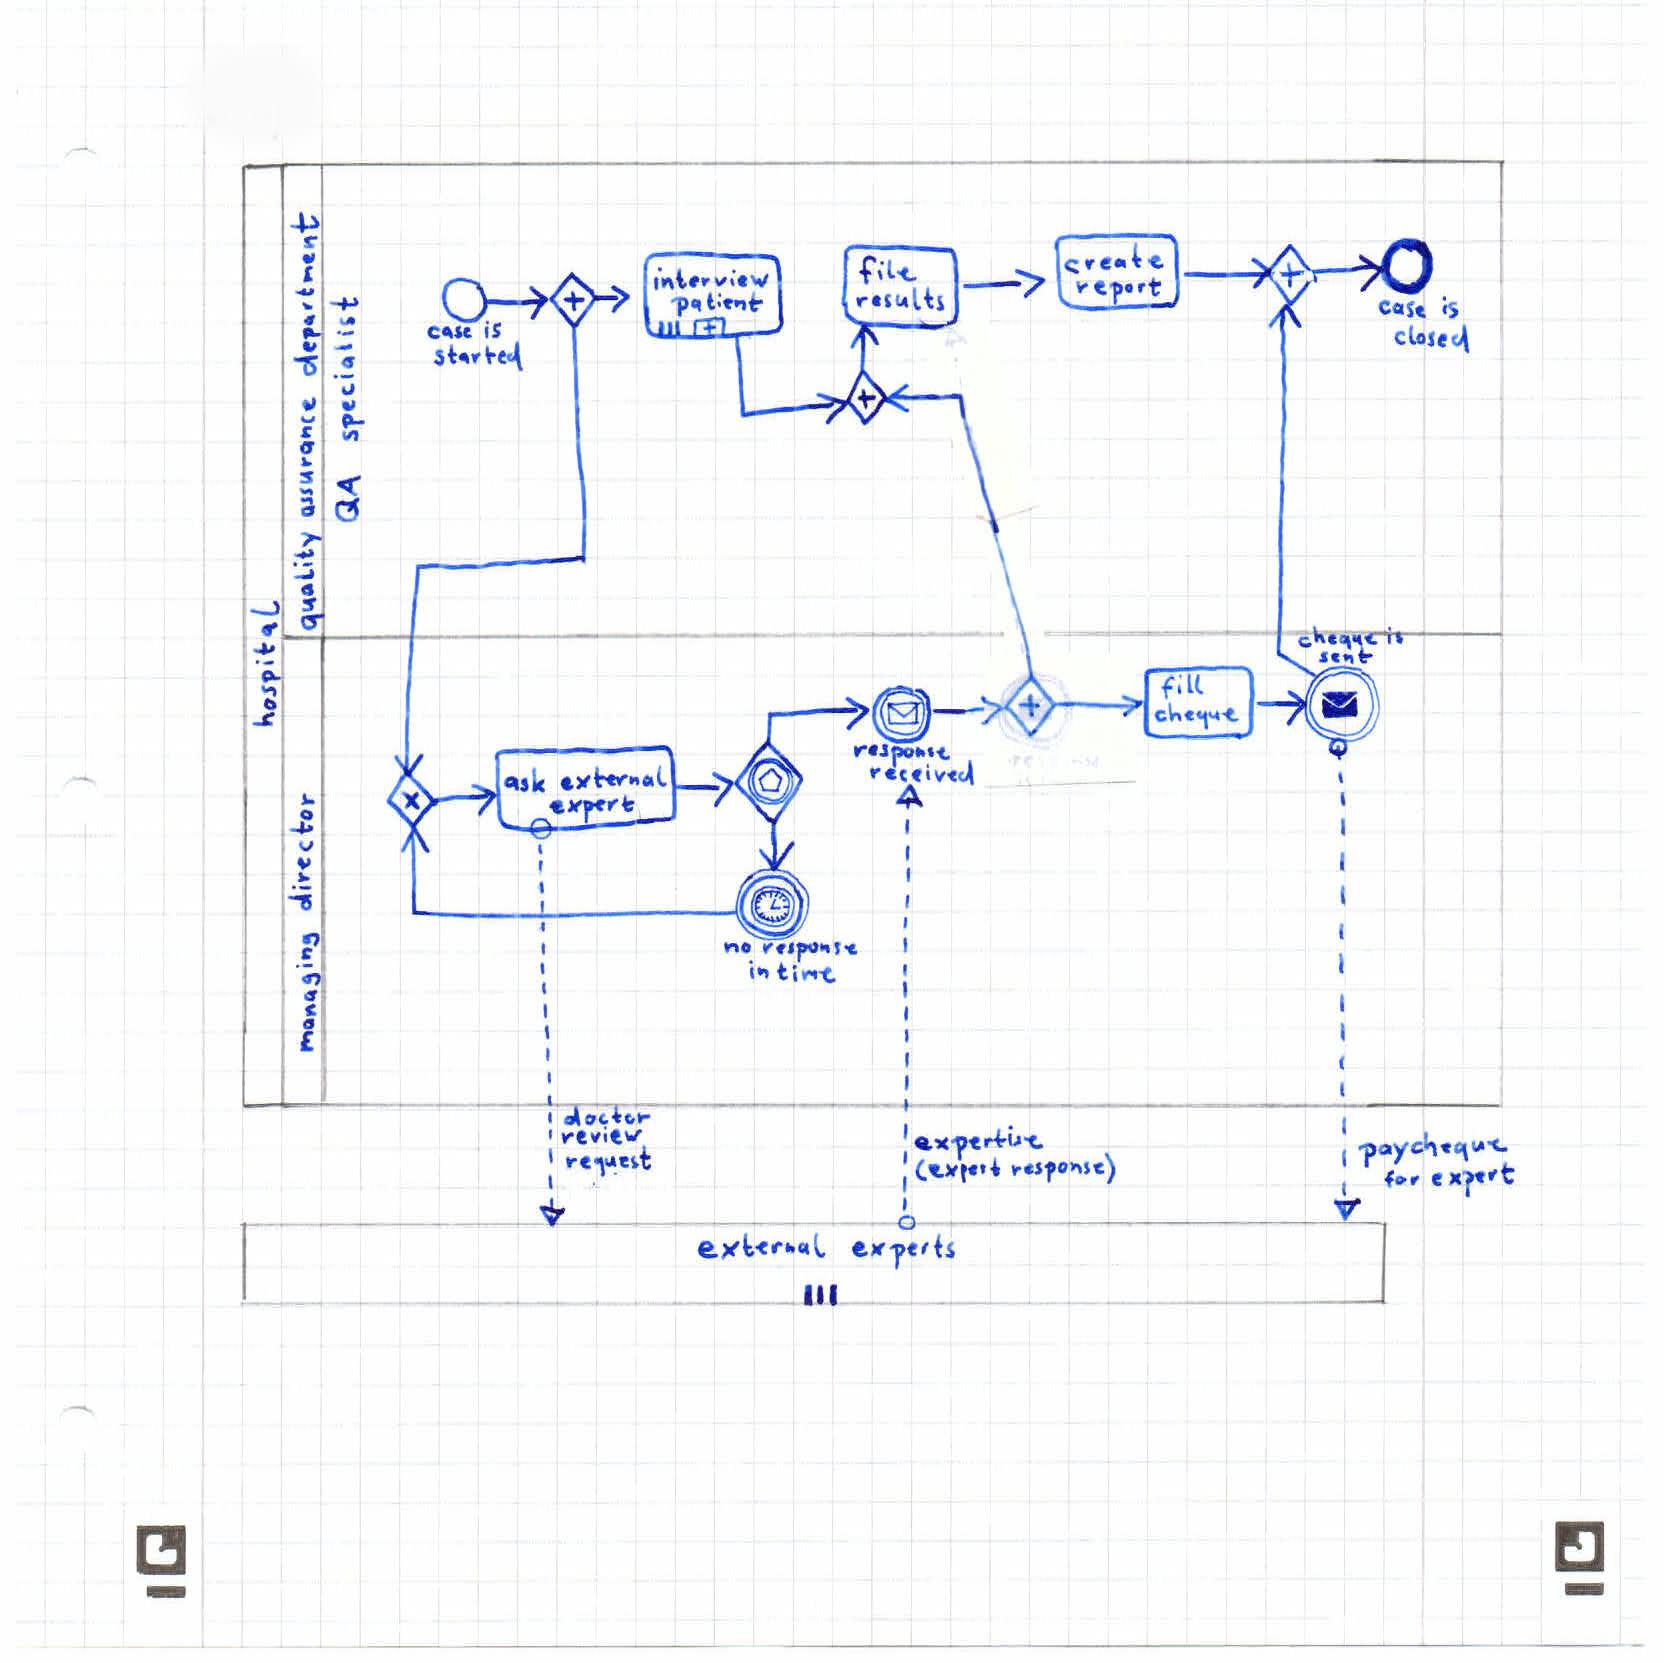 hospital
quality assurance department
QA specialist
case is
started
interview
patient
file
results
create
report
case is
closed
managing director
ask external
expert
response
received
no response
in time
fill
cheque
cheque is
sent
doctor
review
request
expertise
(expert response)
paycheque
for expert
external experts